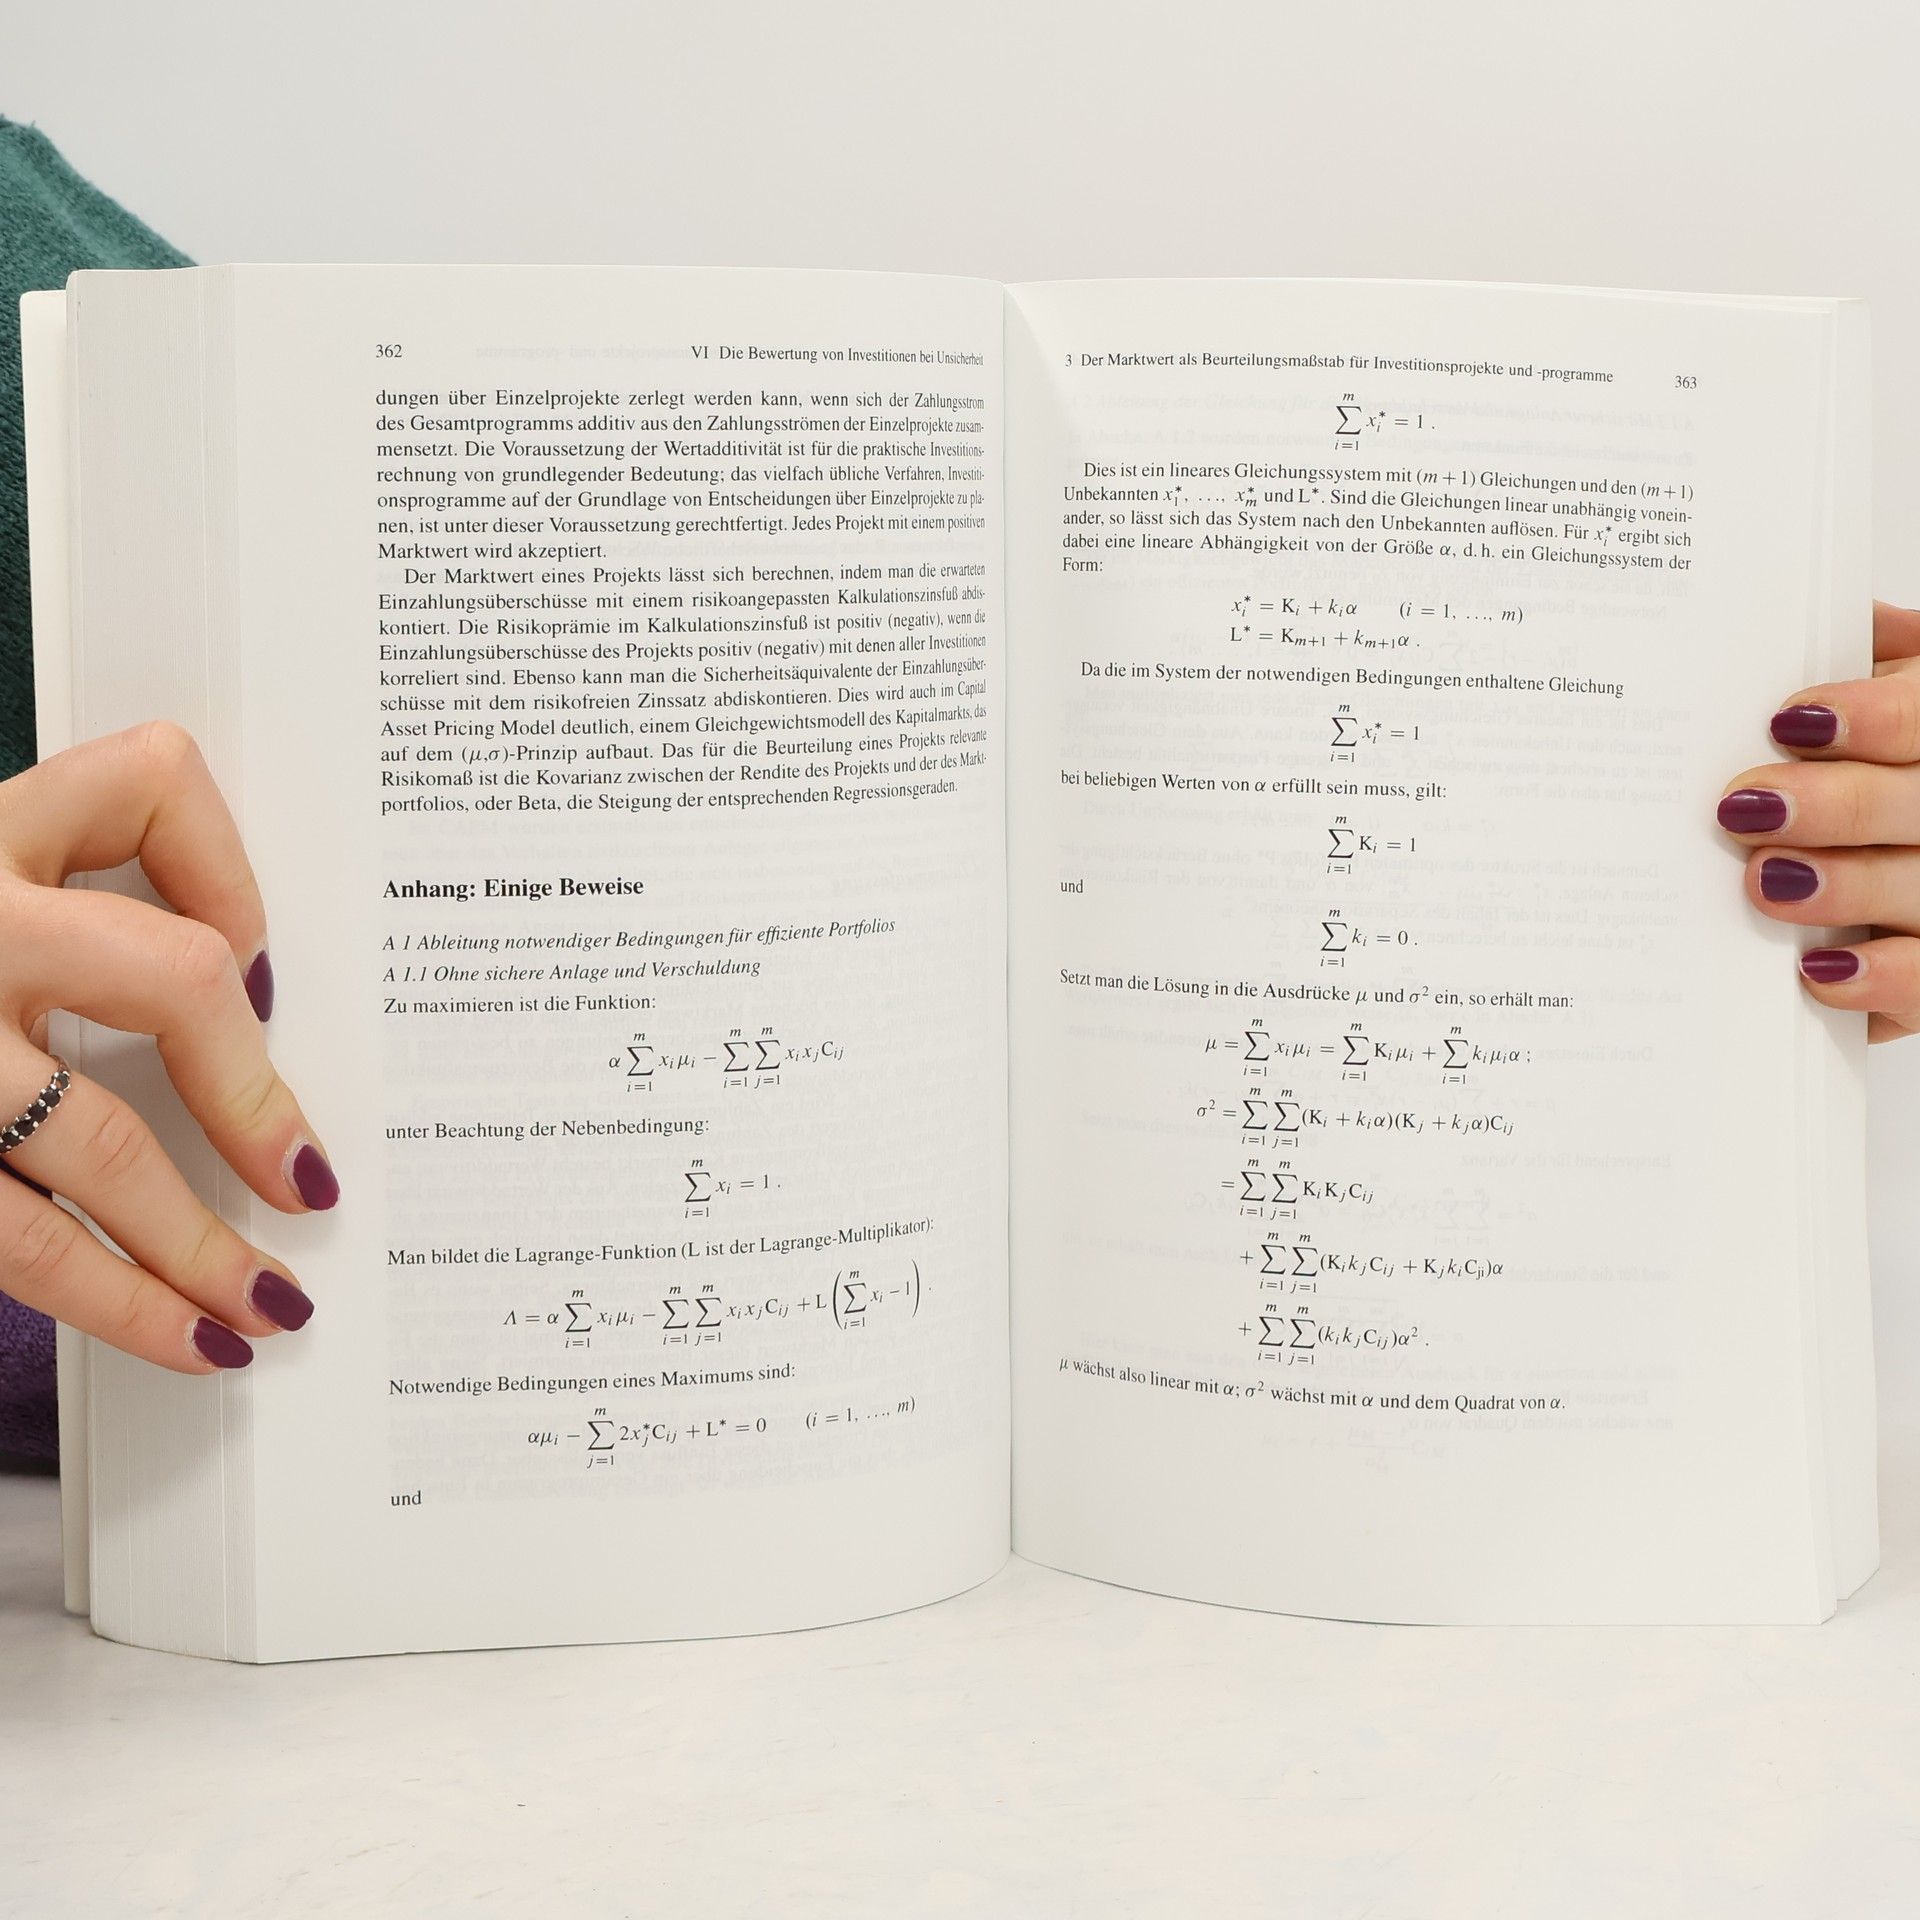 362 VI Die Bewertung von Investitionen bei Unsicherheit
dungen über Einzelprojekte zerlegt werden kann, wenn sich der Zahlungsstrom
des Gesamtprogramms additiv aus den Zahlungsströmen der Einzelprojekte zusam-
mensetzt. Die Voraussetzung der Wertadditivität ist für die praktische Investitions-
rechnung von grundlegender Bedeutung; das vielfach übliche Verfahren, Investiti-
onsprogramme auf der Grundlage von Entscheidungen über Einzelprojekte zu pla-
nen, ist unter dieser Voraussetzung gerechtfertigt. Jedes Projekt mit einem positiven
Marktwert wird akzeptiert.
Der Marktwert eines Projekts lässt sich berechnen, indem man die erwarteten
Einzahlungsüberschüsse mit einem risikoangepassten Kalkulationszinsfuß abdis-
kontiert. Die Risikoprämie im Kalkulationszinsfuß ist positiv (negativ), wenn die
Einzahlungsüberschüsse des Projekts positiv (negativ) mit denen aller Investitionen
korreliert sind. Ebenso kann man die Sicherheitsäquivalente der Einzahlungsüber-
schüsse mit dem risikofreien Zinssatz abdiskontieren. Dies wird auch im Capital
Asset Pricing Model deutlich, einem Gleichgewichtsmodell des Kapitalmarkts, das
auf dem (μ,σ)-Prinzip aufbaut. Das für die Beurteilung eines Projekts relevante
Risikomaß ist die Kovarianz zwischen der Rendite des Projekts und der des Markt-
portfolios, oder Beta, die Steigung der entsprechenden Regressionsgeraden.
Anhang: Einige Beweise
A 1 Ableitung notwendiger Bedingungen für effiziente Portfolios
A 1.1 Ohne sichere Anlage und Verschuldung
Zu maximieren ist die Funktion:
α ∑_{i=1}^{m} x_i μ_i − ∑_{i=1}^{m} ∑_{j=1}^{m} x_i x_j C_{ij}
unter Beachtung der Nebenbedingung:
∑_{i=1}^{m} x_i = 1 .
Man bildet die Lagrange-Funktion (L ist der Lagrange-Multiplikator):
Λ = α ∑_{i=1}^{m} x_i μ_i − ∑_{i=1}^{m} ∑_{j=1}^{m} x_i x_j C_{ij} + L ( ∑_{i=1}^{m} x_i − 1 ) .
Notwendige Bedingungen eines Maximums sind:
αμ_i − ∑_{j=1}^{m} 2x_j^* C_{ij} + L^* = 0 (i = 1, …, m)
und
3 Der Marktwert als Beurteilungsmaßstab für Investitionsprojekte und -programme 363
∑_{i=1}^{m} x_i^* = 1 .
Dies ist ein lineares Gleichungssystem mit (m + 1) Gleichungen und den (m + 1)
Unbekannten x_1^*, …, x_m^* und L^*. Sind die Gleichungen linear unabhängig vonein-
ander, so lässt sich das System nach den Unbekannten auflösen. Für x_i^* ergibt sich
dabei eine lineare Abhängigkeit von der Größe α, d. h. ein Gleichungssystem der
Form:
x_i^* = K_i + k_i α (i = 1, …, m)
L^* = K_{m+1} + k_{m+1} α .
Da die im System der notwendigen Bedingungen enthaltene Gleichung
∑_{i=1}^{m} x_i^* = 1
bei beliebigen Werten von α erfüllt sein muss, gilt:
∑_{i=1}^{m} K_i = 1
und
∑_{i=1}^{m} k_i = 0 .
Setzt man die Lösung in die Ausdrücke μ und σ² ein, so erhält man:
μ = ∑_{i=1}^{m} x_i μ_i = ∑_{i=1}^{m} K_i μ_i + ∑_{i=1}^{m} k_i μ_i α ;
σ² = ∑_{i=1}^{m} ∑_{j=1}^{m} (K_i + k_i α)(K_j + k_j α)C_{ij}
= ∑_{i=1}^{m} ∑_{j=1}^{m} K_i K_j C_{ij}
+ ∑_{i=1}^{m} ∑_{j=1}^{m} (K_i k_j C_{ij} + K_j k_i C_{ji})α
+ ∑_{i=1}^{m} ∑_{j=1}^{m} (k_i k_j C_{ij})α² .
μ wächst also linear mit α; σ² wächst mit α und dem Quadrat von α.